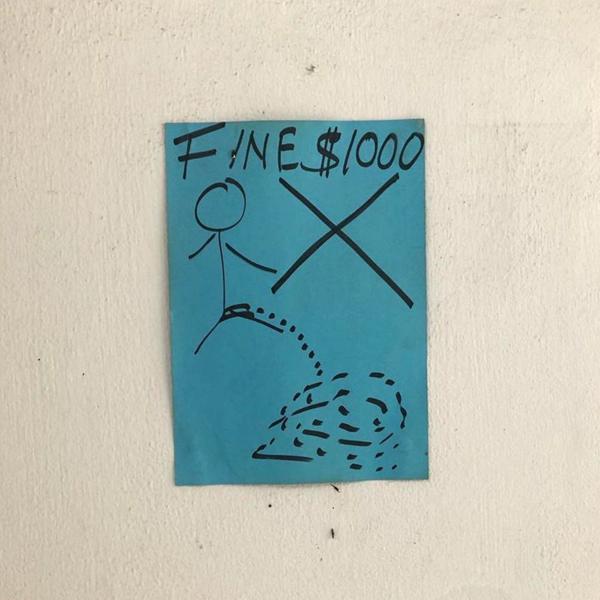 FINE $1000